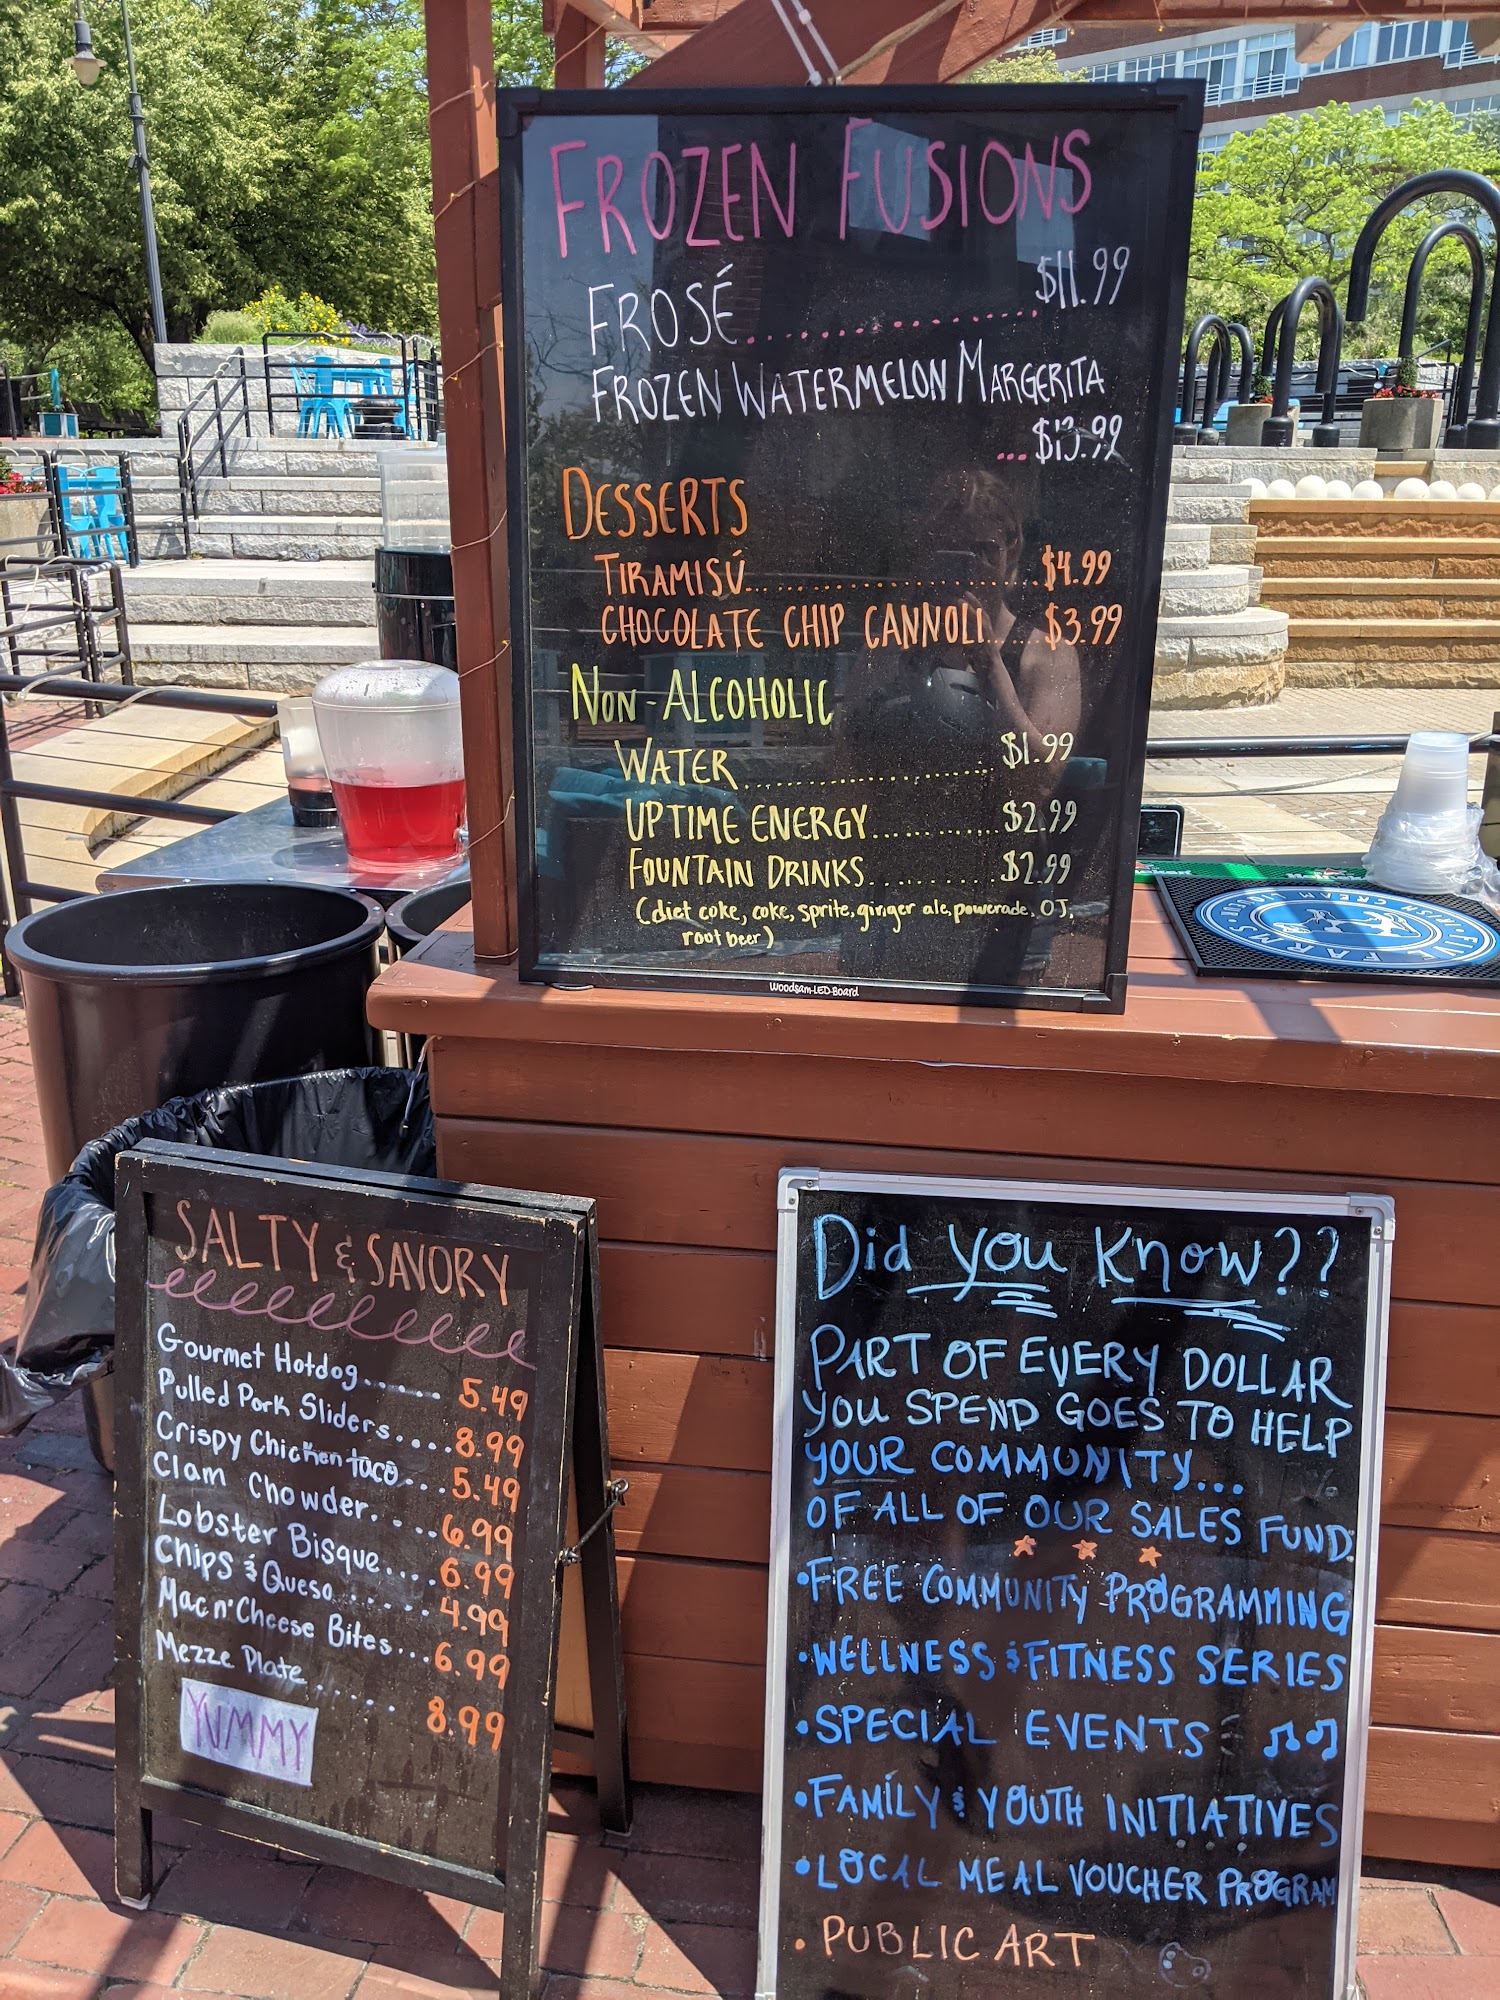 FROZEN FUSIONS
FROSÉ.................$11.99
FROZEN WATERMELON MARGERITA
...$13.99
DESSERTS
TIRAMISÚ........................$4.99
CHOCOLATE CHIP CANNOLI......$3.99
NON-ALCOHOLIC
WATER......................$1.99
UPTIME ENERGY............$2.99
FOUNTAIN DRINKS..........$2.99
(diet coke, coke, sprite, ginger ale, powerade, OJ,
root beer)
Woodsam-LED-Board
FIVE FARMS
IRISH CREAM LIQUEUR
SALTY & SAVORY
Gourmet Hotdog...... 5.49
Pulled Pork Sliders.... 8.99
Crispy Chicken taco.... 5.49
Clam Chowder.... 6.99
Lobster Bisque.... 6.99
Chips & Queso...... 4.99
Mac n' Cheese Bites... 6.99
Mezze Plate...... 8.99
YUMMY
Did you Know??
PART OF EVERY DOLLAR
YOU SPEND GOES TO HELP
YOUR COMMUNITY...
OF ALL OF OUR SALES FUND.
•FREE COMMUNITY PROGRAMMING
•WELLNESS & FITNESS SERIES
•SPECIAL EVENTS
•FAMILY & YOUTH INITIATIVES
•LOCAL MEAL VOUCHER PROGRAM
•PUBLIC ART